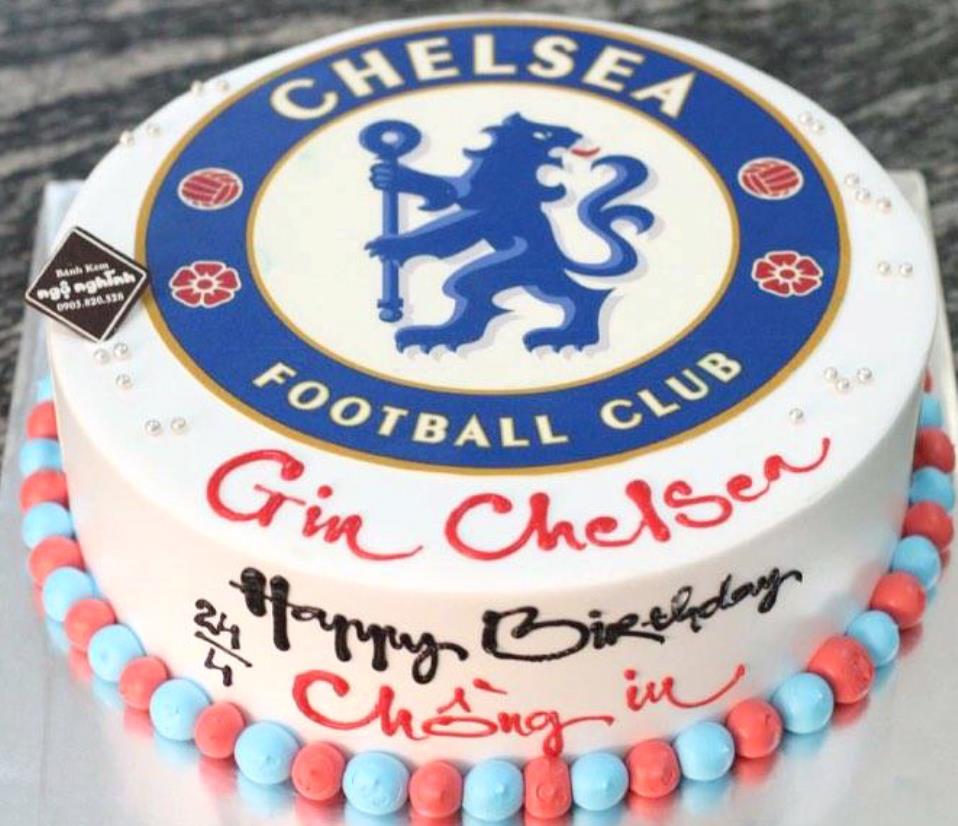 CHELSEA
FOOTBALL CLUB
Bánh Kem
ngộ nghĩnh
0903.820.528
Gin Chelsea
Happy Birthday
24
4
Chồng iu